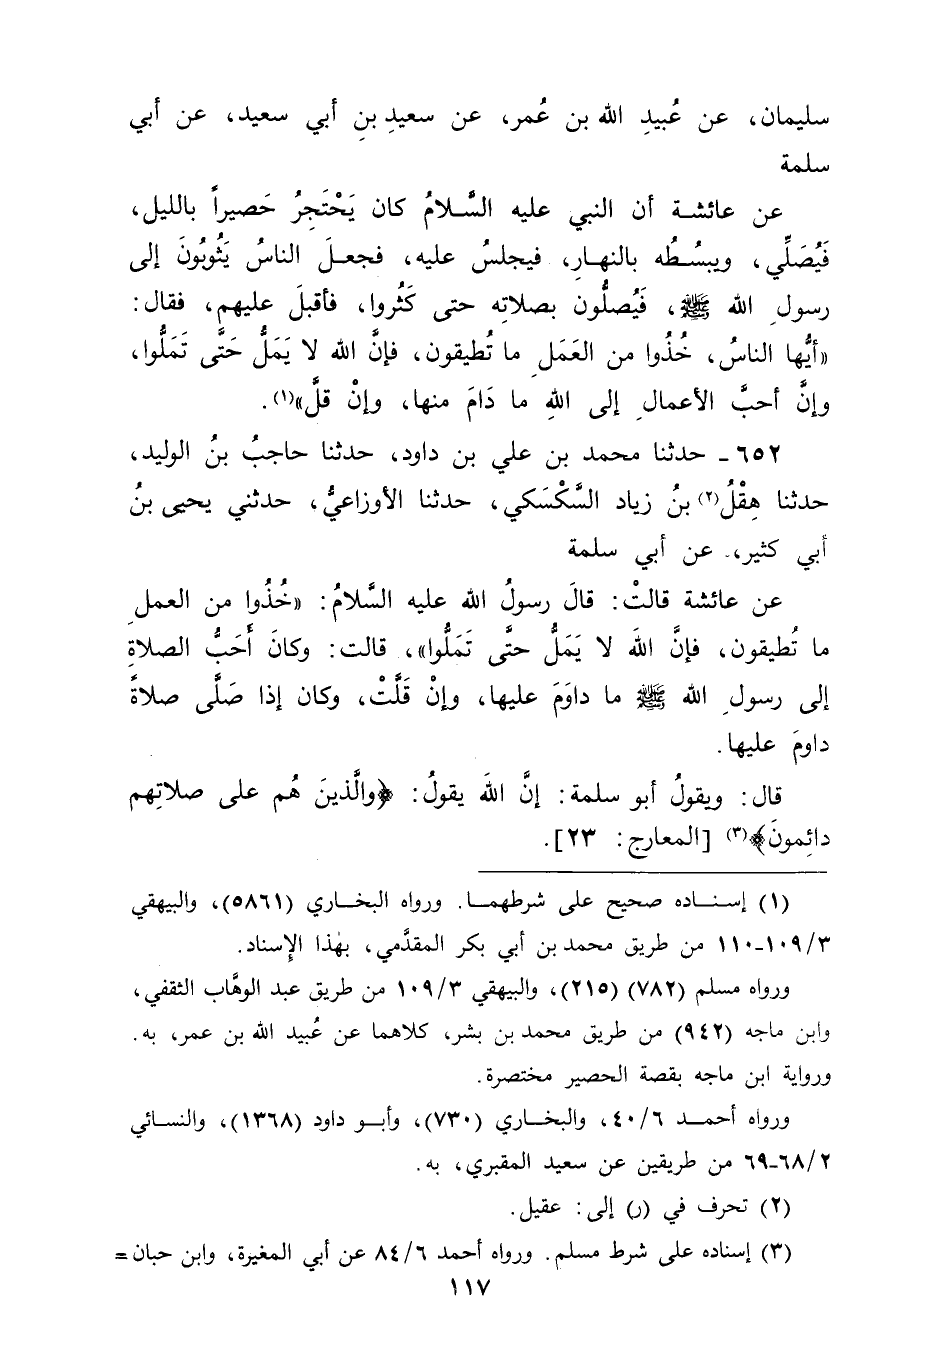 سليمان، عن عُبيدِ الله بن عُمر، عن سعيدِ بنِ أبي سعيد، عن أبي
سلمة
عن عائشة أن النبي عليه السَّلامُ كان يَحْتَجِرُ حَصيراً بالليل،
فَيُصَلِّي، ويبسُطُه بالنهارِ، فيجلسُ عليه، فجعلَ الناسُ يَثُوبُونَ إلى
رسولِ الله ﷺ، فَيُصلُّون بصلاتِه حتى كَثُروا، فأقبلَ عليهم، فقال:
«أيُّها الناسُ، خُذُوا من العَمَلِ ما تُطيقون، فإنَّ الله لا يَمَلُّ حَتَّى تَمَلُّوا،
وإنَّ أحبَّ الأعمالِ إلى اللهِ ما دَامَ منها، وإنْ قلَّ»(١).
٦٥٢ ـ حدثنا محمد بن علي بن داود، حدثنا حاجبُ بنُ الوليد،
حدثنا هِقْلُ(٢) بنُ زياد السَّكْسَكي، حدثنا الأوزاعيُّ، حدثني يحيى بنُ
أبي كثير، عن أبي سلمة
عن عائشة قالتْ: قالَ رسولُ الله عليه السَّلامُ: «خُذُوا من العملِ
ما تُطيقون، فإنَّ اللهَ لا يَمَلُّ حتَّى تَمَلُّوا»، قالت: وكانَ أَحَبُّ الصلاةِ
إلى رسولِ الله ﷺ ما داوَمَ عليها، وإنْ قَلَّتْ، وكان إذا صَلَّى صلاةً
داومَ عليها.
قال: ويقولُ أبو سلمة: إنَّ اللهَ يقولُ: ﴿والَّذينَ هُم على صلاتِهم
دائِمونَ﴾(٣) [المعارج: ٢٣].
(١) إسناده صحيح على شرطهما. ورواه البخاري (٥٨٦١)، والبيهقي
٣/١٠٩-١١٠ من طريق محمد بن أبي بكر المقدَّمي، بهٰذا الإِسناد.
ورواه مسلم (٧٨٢) (٢١٥)، والبيهقي ٣/١٠٩ من طريق عبد الوهَّاب الثقفي،
وابن ماجه (٩٤٢) من طريق محمد بن بشر، كلاهما عن عُبيد الله بن عمر، به.
ورواية ابن ماجه بقصة الحصير مختصرة.
ورواه أحمد ٦/٤٠، والبخاري (٧٣٠)، وأبو داود (١٣٦٨)، والنسائي
٢/٦٨-٦٩ من طريقين عن سعيد المقبري، به.
(٢) تحرف في (ر) إلى: عقيل.
(٣) إسناده على شرط مسلم. ورواه أحمد ٦/٨٤ عن أبي المغيرة، وابن حبان =
١١٧